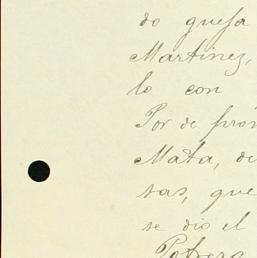 do queja
Martinez,
lo con
Por de pron
Mata, de
tas, que
se dio el
Potrero